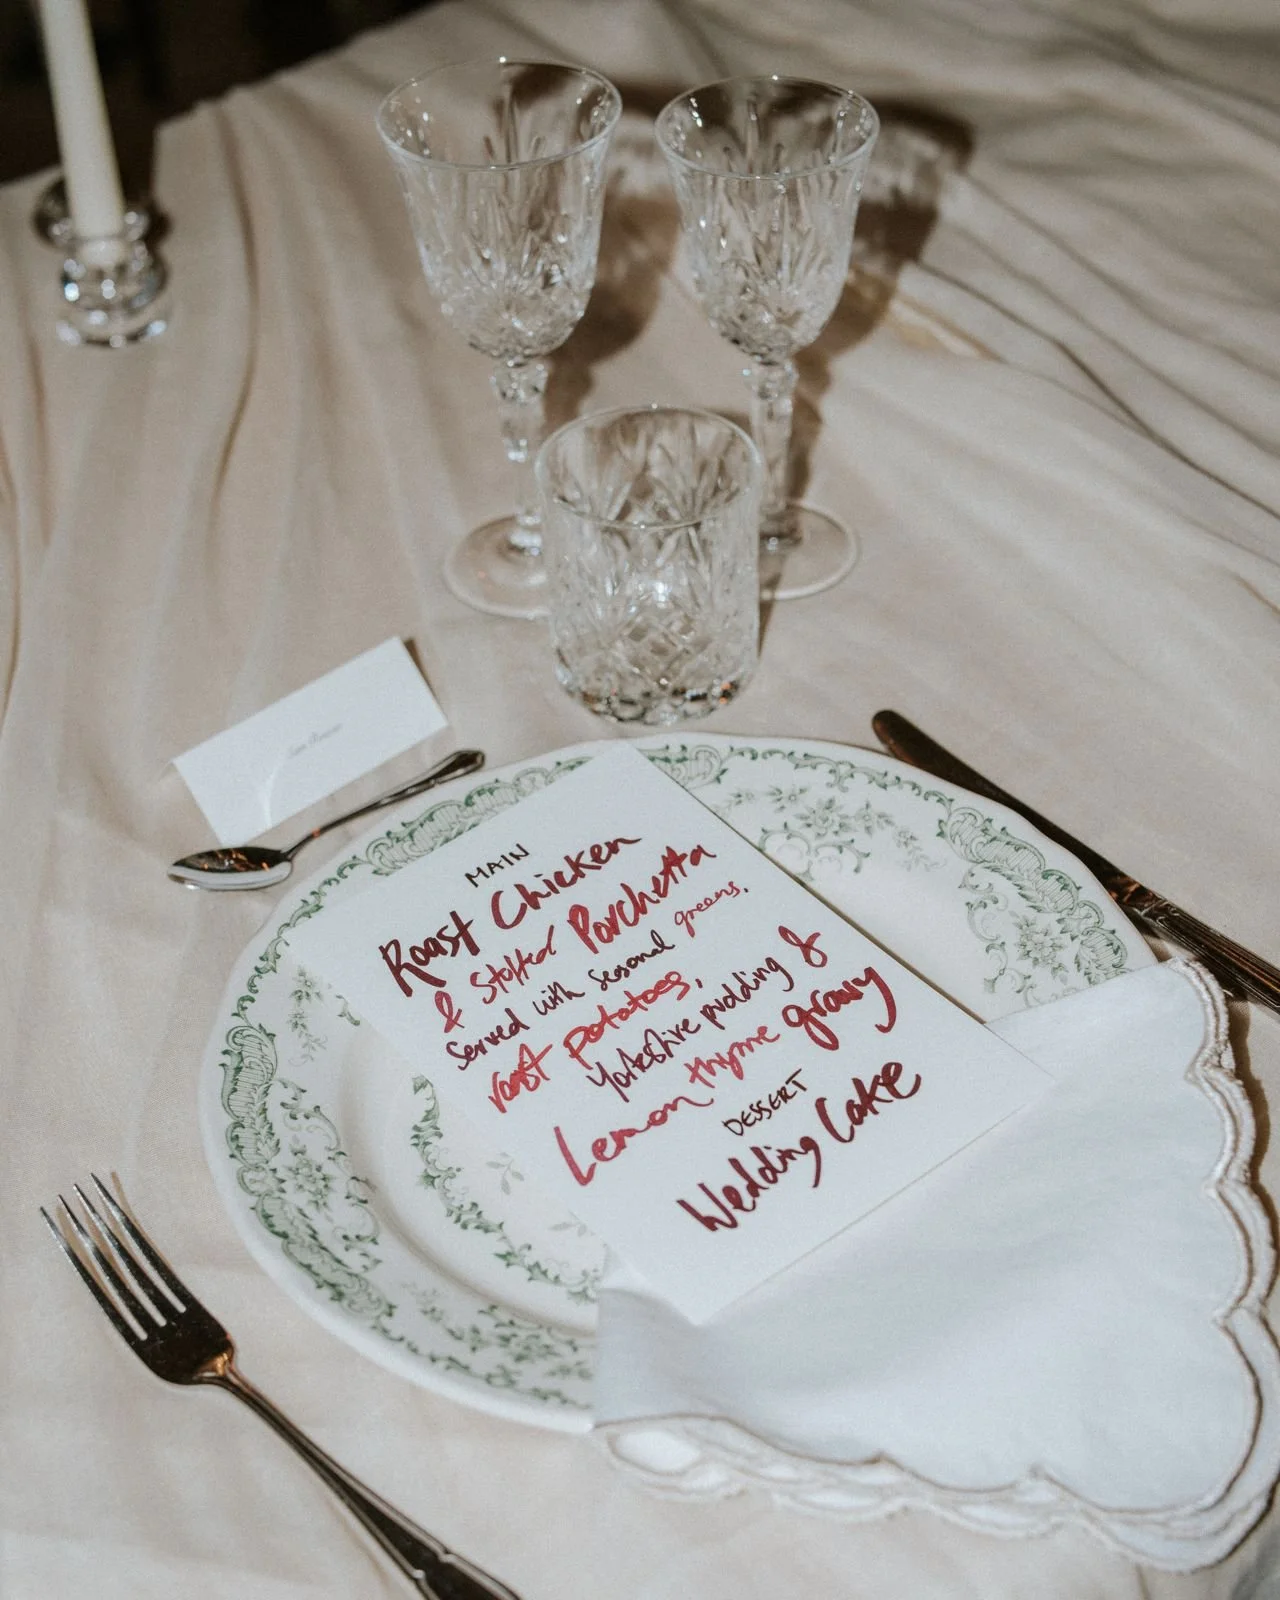 MAIN
Roast Chicken
& Stuffed Porchetta
Served with Seasonal greens,
roast potatoes,
Yorkshire pudding &
Lemon thyme gravy
DESSERT
Wedding Cake